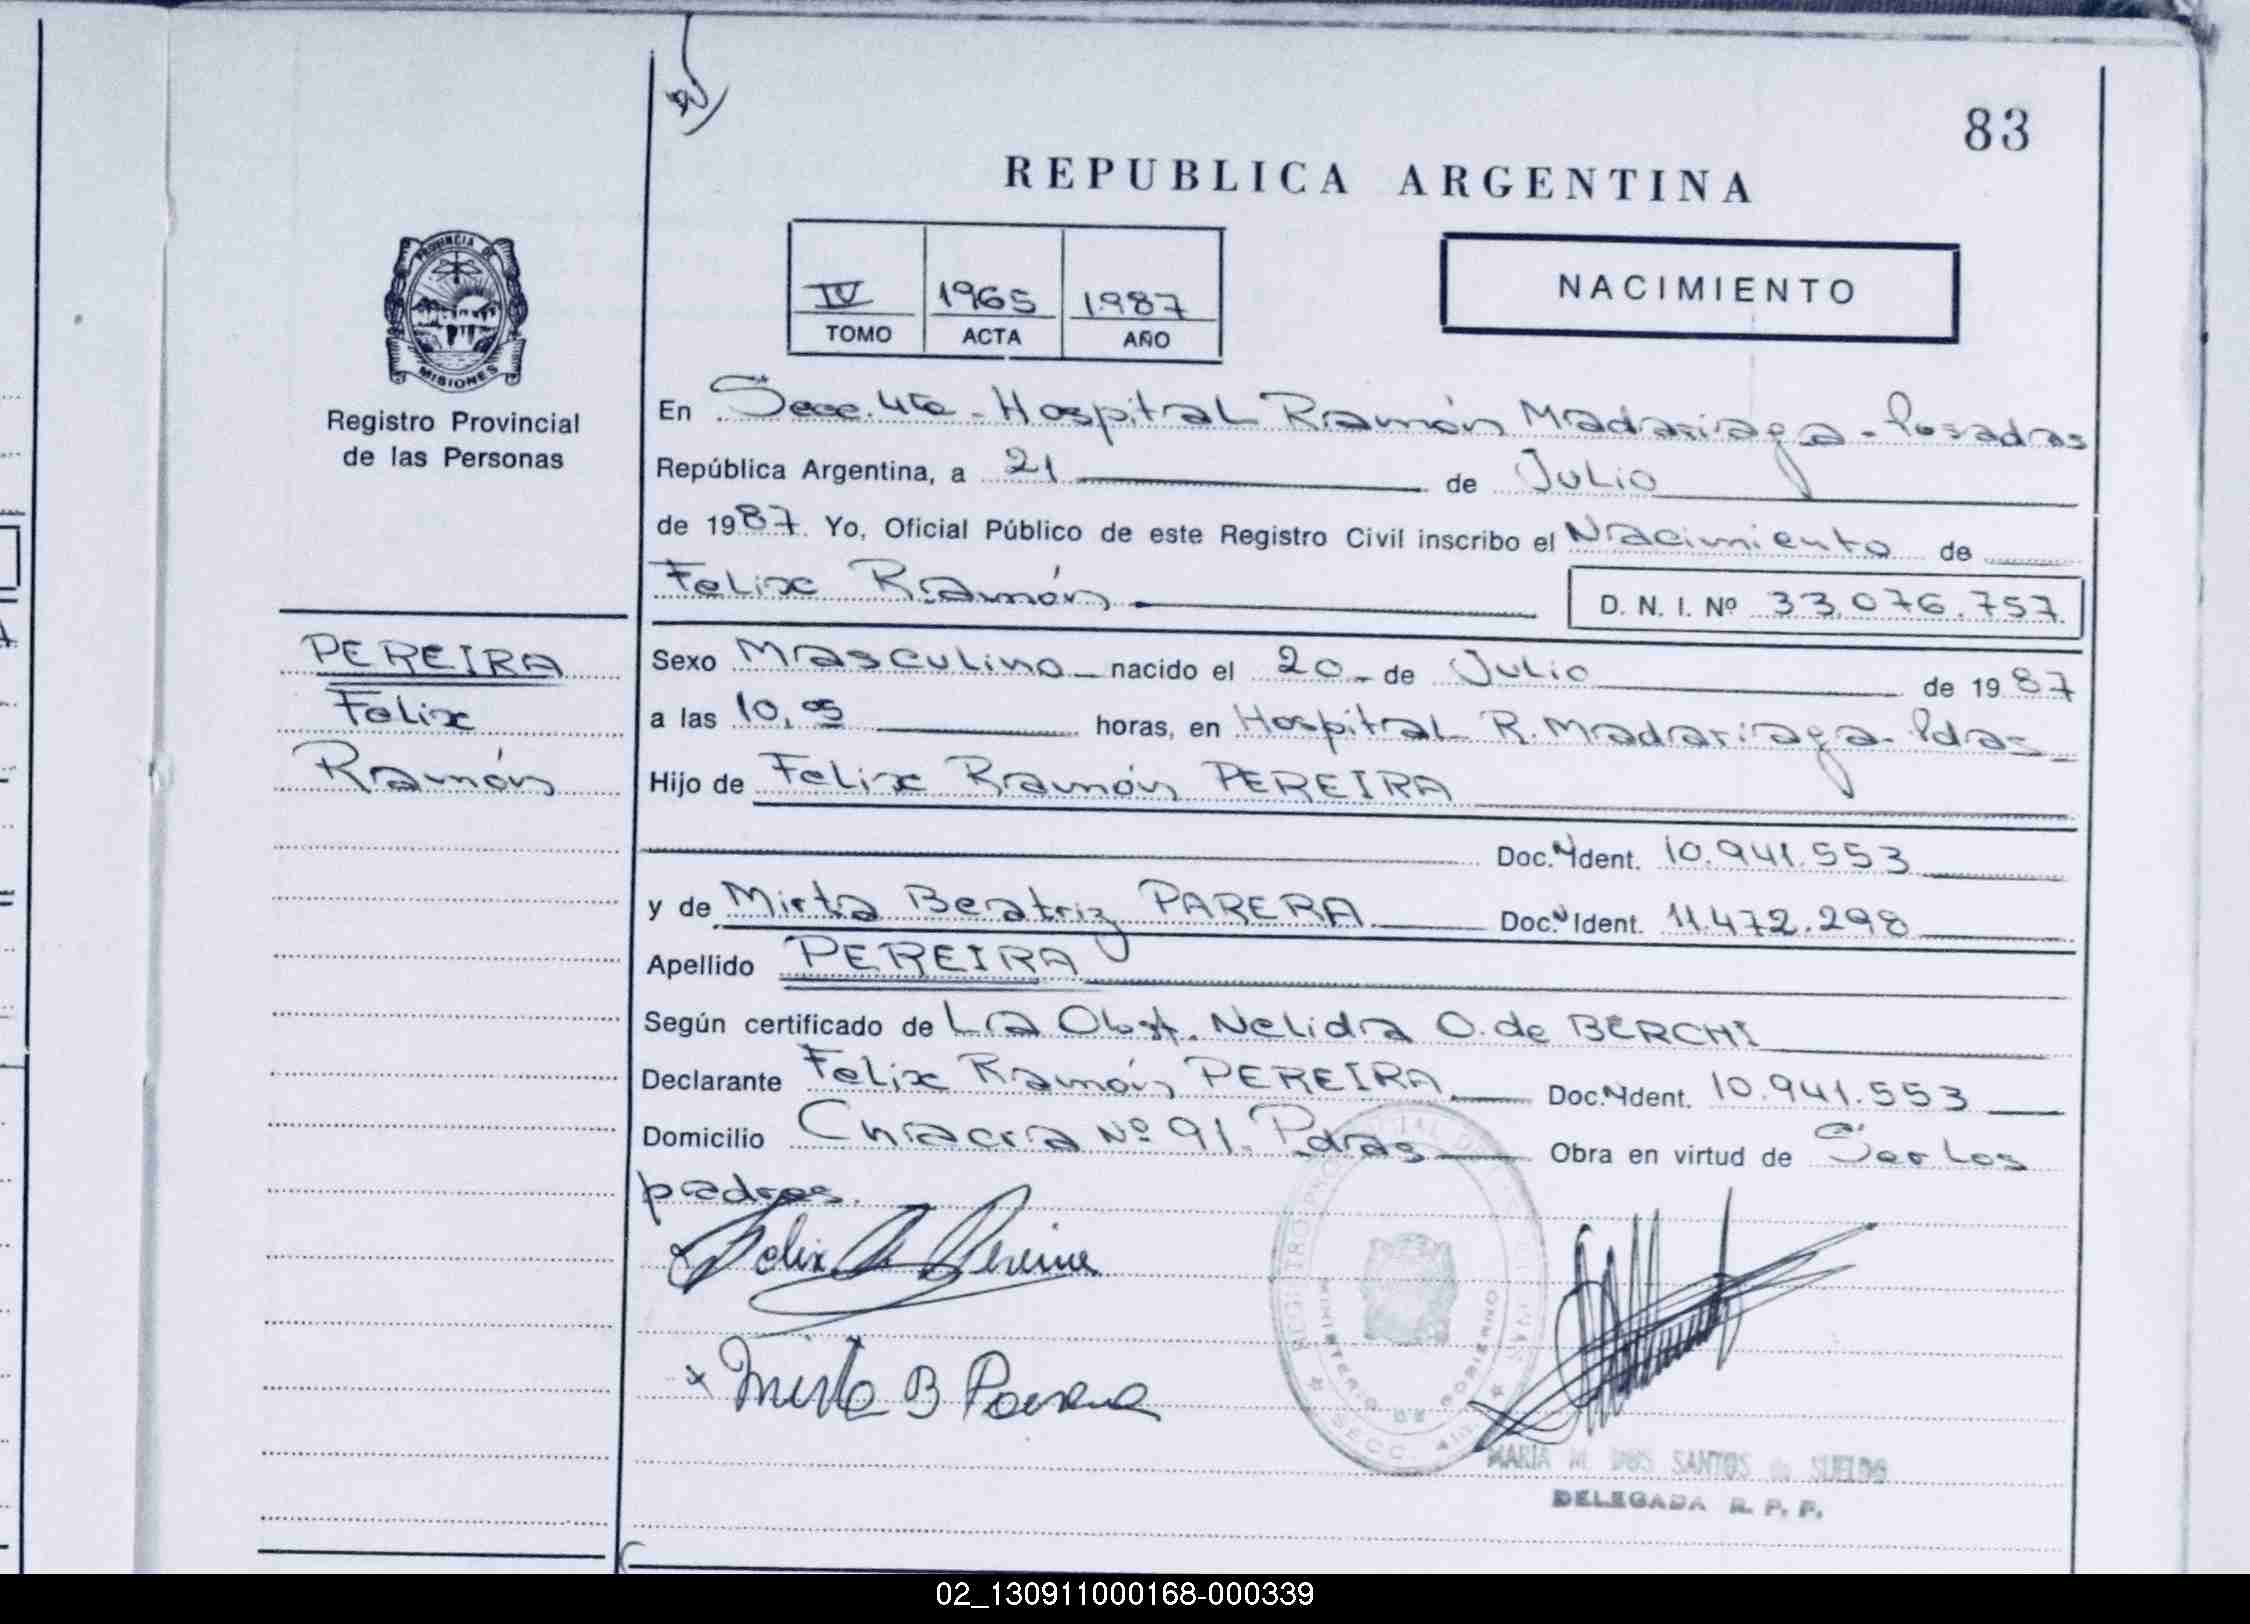 83
REPUBLICA ARGENTINA
PROVINCIA DE
MISIONES
Registro Provincial
de las Personas
IV 1965 1987
TOMO ACTA AÑO
NACIMIENTO
En Secc. 4ta - Hospital Ramón Madariaga - Posadas
República Argentina, a 21 de Julio
de 1987. Yo, Oficial Público de este Registro Civil inscribo el Nacimiento de
Felix Ramón
D. N. I. Nº 33.076.757
PEREIRA
Felix
Ramón
Sexo Masculino nacido el 20 de Julio de 1987
a las 10,05 horas, en Hospital R. Madariaga - Pdas
Hijo de Felix Ramón PEREIRA
Doc. N Ident. 10.941.553
y de Mirta Beatriz PARERA Doc. N Ident. 11.472.298
Apellido PEREIRA
Según certificado de La Obst. Nelida O. de BERCHI
Declarante Felix Ramón PEREIRA Doc. N Ident. 10.941.553
Domicilio Chacra Nº 91. Pdas Obra en virtud de Ser los
padres.
Felix R Pereira
x Mirta B Parera
MINISTERIO DE GOBIERNO
SECC.
MARIA M. DOS SANTOS de SUELDO
DELEGADA R. P. P.
02_130911000168-000339